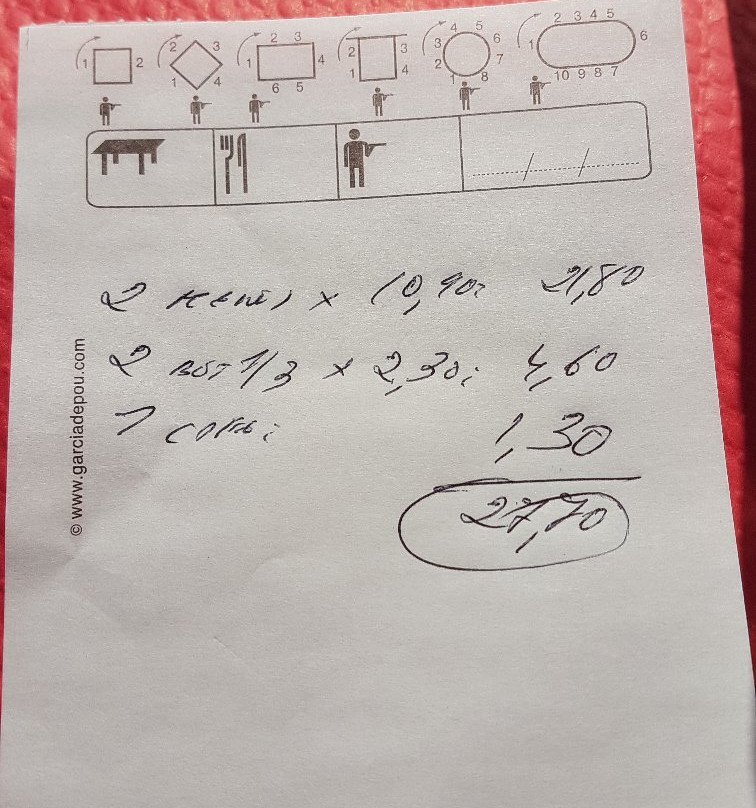 1 2
2 3
1 4
2 3
1 4
6 5
2 3
1 4
4 5
3 6
2 7
1 8
2 3 4 5
1 6
10 9 8 7
2 x 10,90: 21,80
2 1/3 x 2,30: 4,60
1 1,30
27,70
© www.garciadepou.com